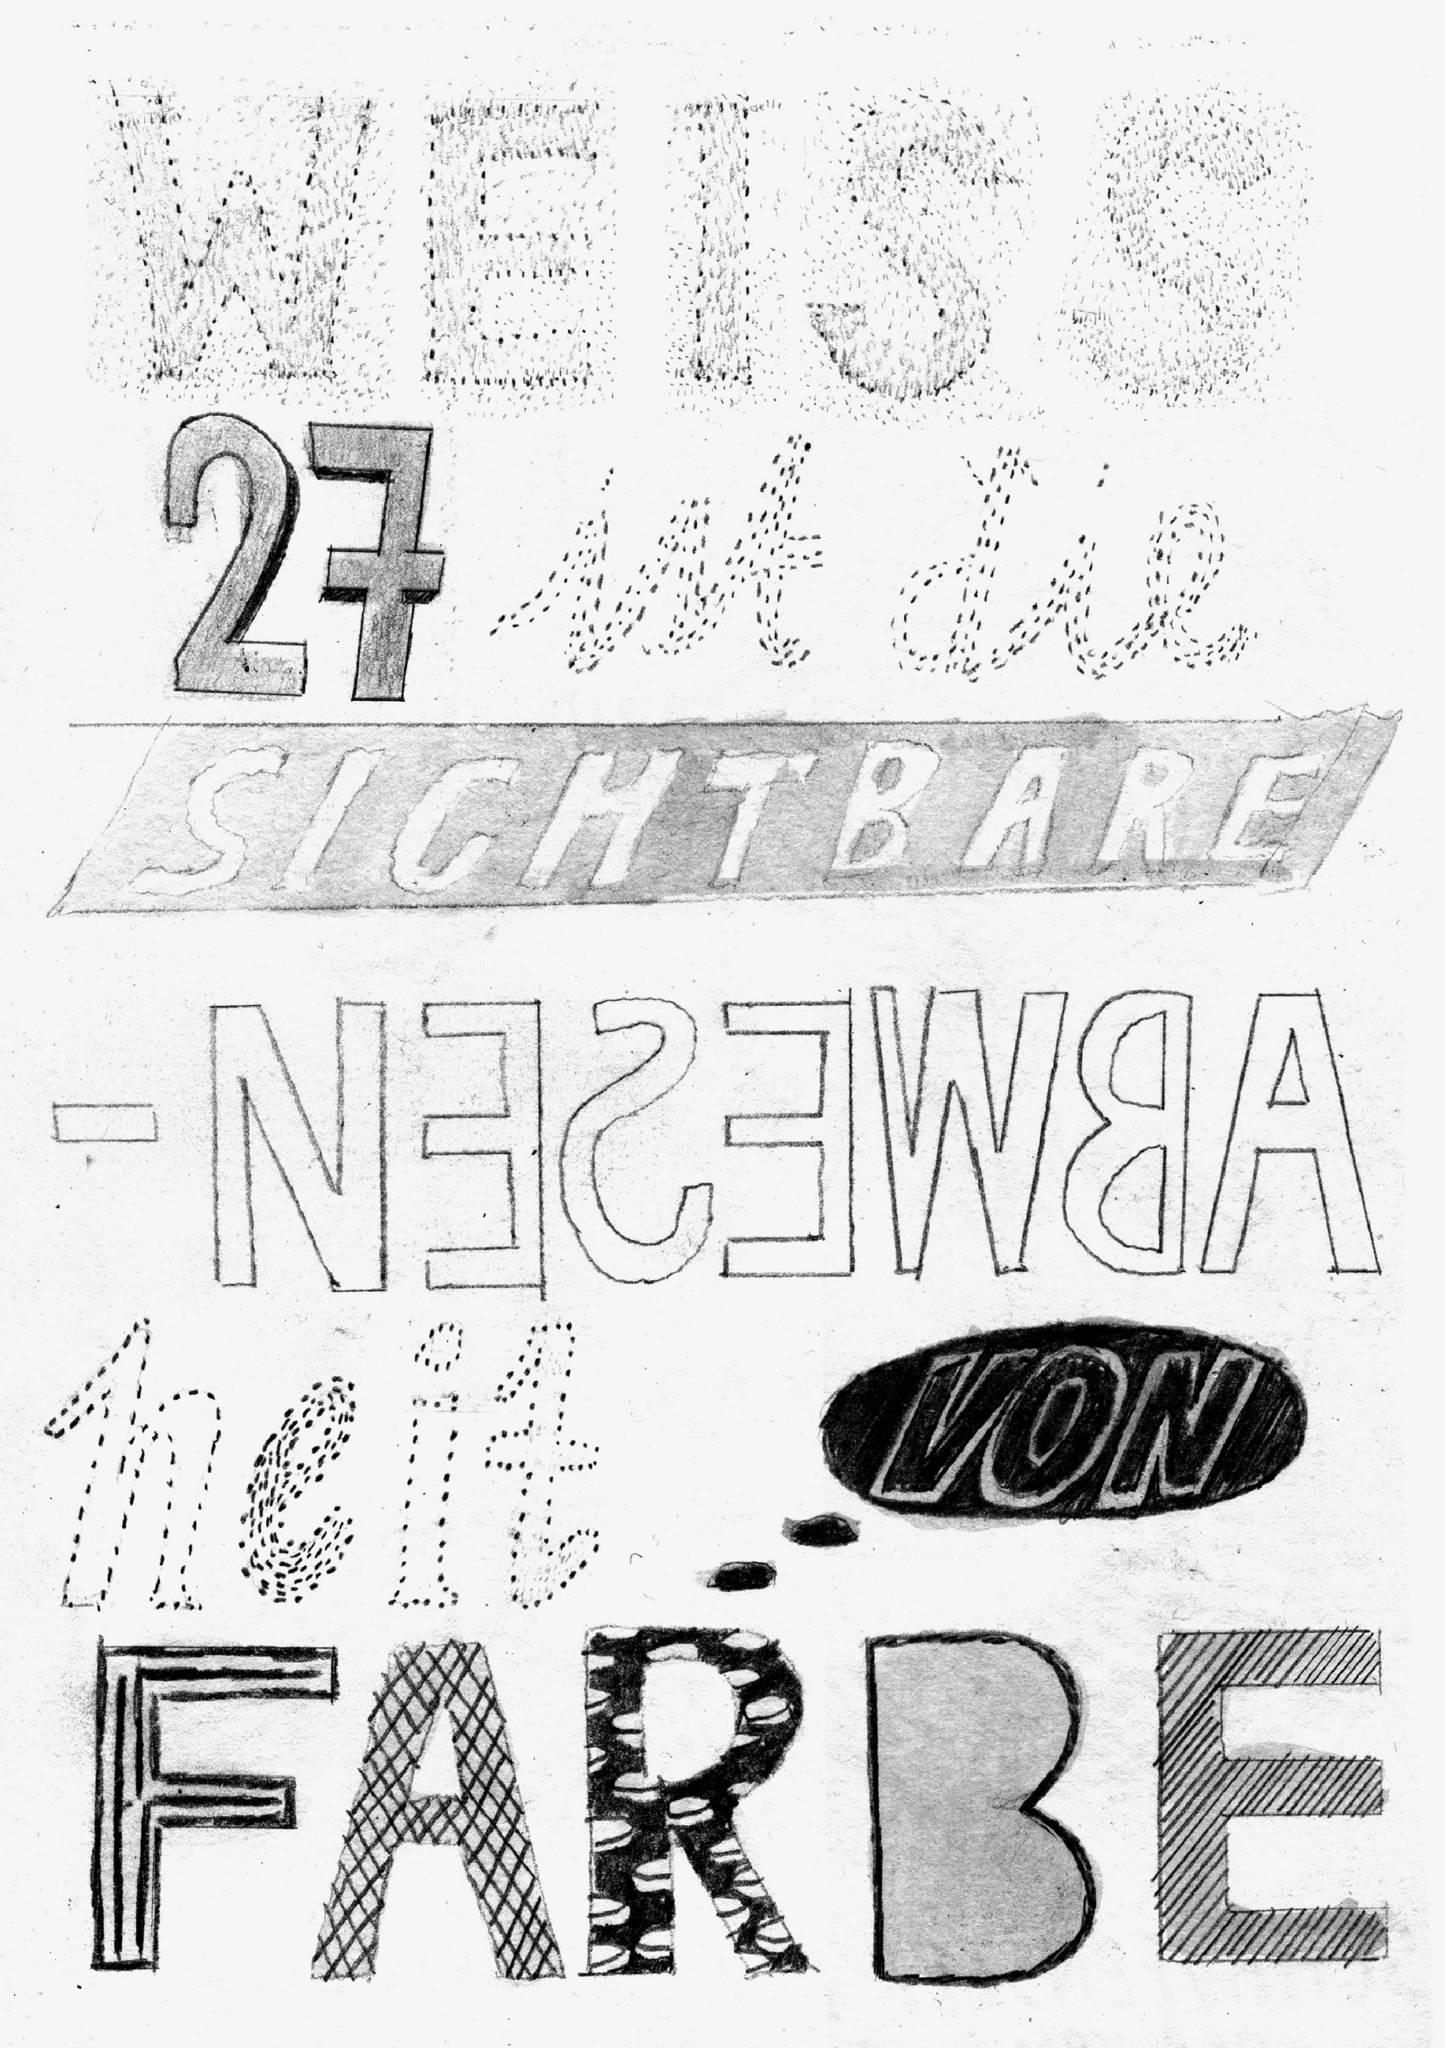 WEISS
27 ist die
SICHTBARE
ABWESEN-
heit VON
FARBE